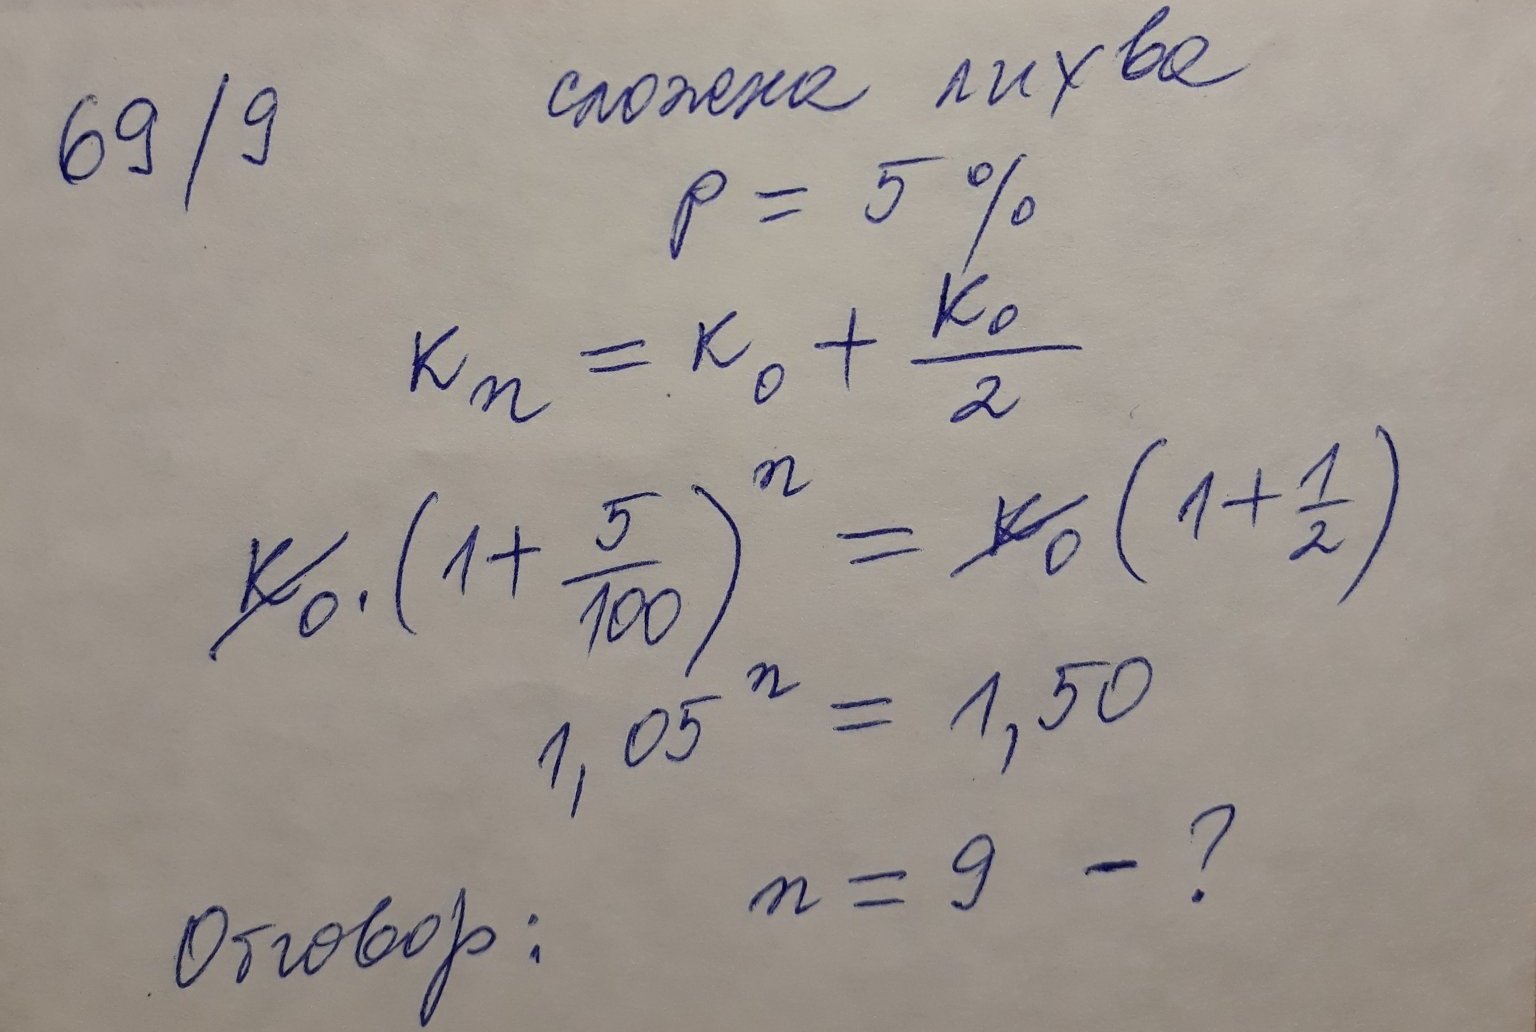 69/9 сложна лихва
p = 5 %
Kₙ = K₀ + K₀/2
K₀.(1+5/100)ⁿ = K₀(1+1/2)
1,05ⁿ = 1,50
Отговор: n = 9 - ?